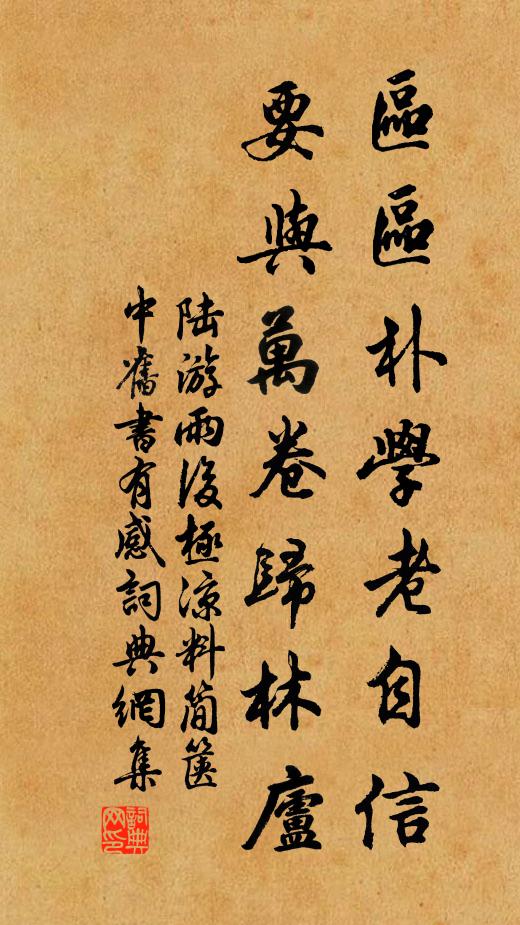 區區朴學老自信
要與萬卷歸林廬
陆游雨後極涼料簡篋
中舊書有感詞典網集
詞典网印